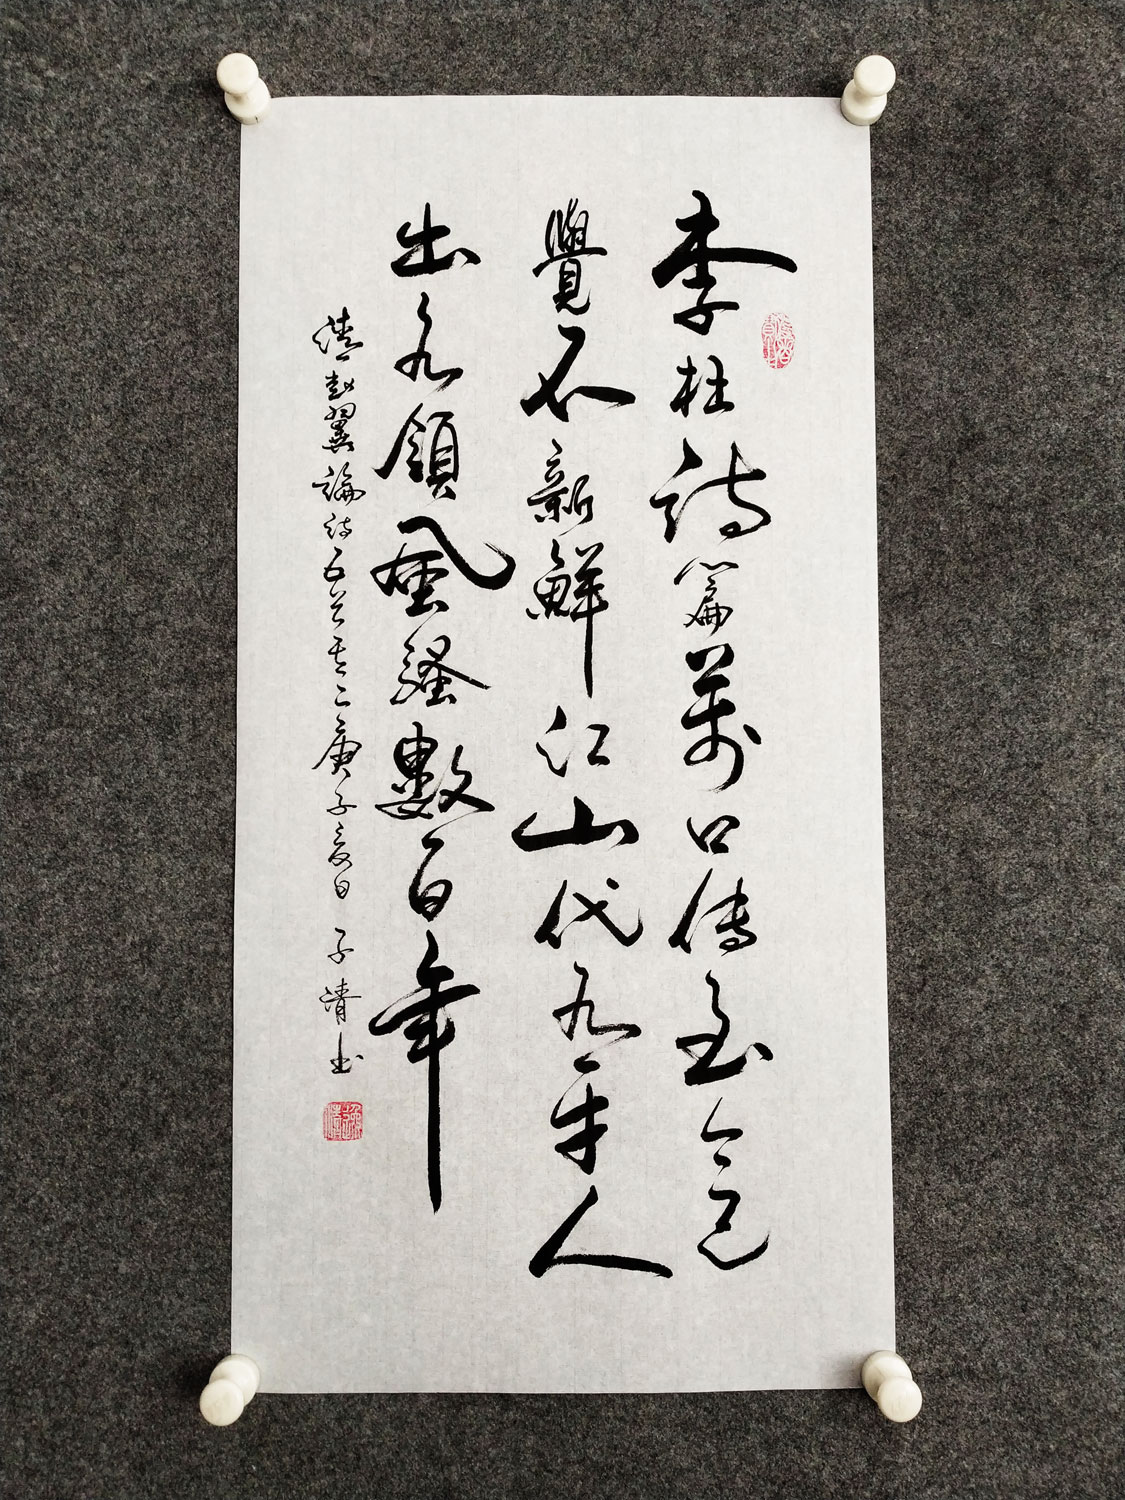 李杜詩篇萬口傳至今已
覺不新鮮江山代有才人
出各領風騷數百年
清趙翼論詩五首其二庚子夏日子清書